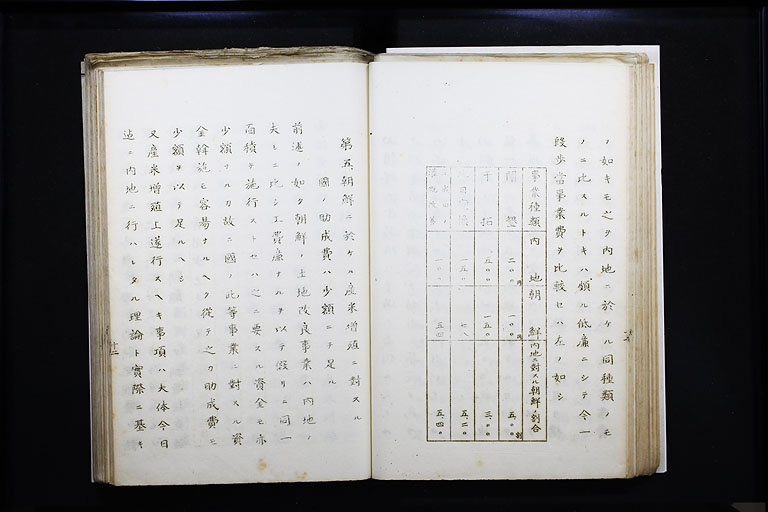 ノ如キモ之ヲ内地ニ於ケル同種類ノモ
ノニ比スルトキハ頗ル低廉ニシテ今一
段歩當事業費ヲ比較セハ左ノ如シ
事業種類 内地 朝鮮 内地ニ對スル朝鮮ノ割合
開墾 二〇〇円 一〇〇円 五、〇〇割
干拓 五〇〇 一五〇 三、〇〇
一五〇 七八 五、二〇
一〇〇 五四 五、四〇
第五、朝鮮ニ於ケル産米増殖ニ對スル
國ノ助成費ハ少額ニテ足ル
前述ノ如ク朝鮮ノ土地改良事業ハ内地ノ
夫レニ比シ工費廉ナルヲ以テ假リニ同一
面積ヲ施行ストセハ之ニ要スル資金モ亦
少額ナルカ故ニ國ノ此等事業ニ對スル資
金斡施モ容昜ナルヘク從テ之カ助成費モ
少額ヲ以テ足ルヘシ
又産米増殖上遂行スヘキ事項ハ大体今日
迠ニ内地ニ行ハレタル理論ト實際ニ基キ